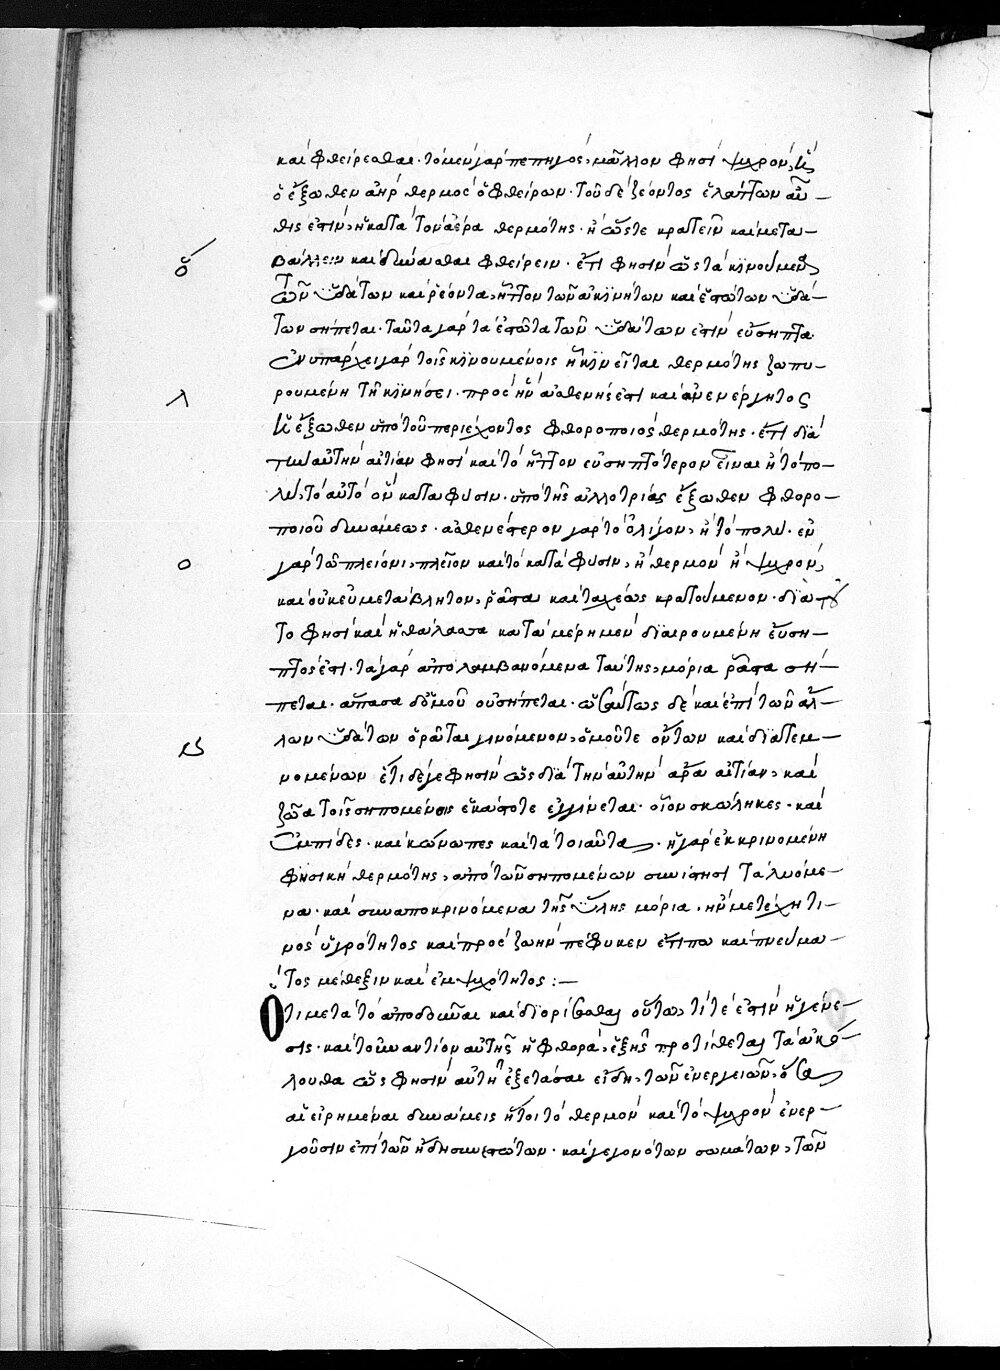 καὶ φθείρεσθαι· τὸ μὲν γὰρ πεπηγός, μᾶλλον φησὶ ψυχρὸν, ἢ
ὁ ἔξωθεν ἀὴρ θερμὸς ὁ φθείρων· τοῦ δὲ ζέοντος ἐλάττων αὖ-
θις ἐστὶν, ἡ κατὰ τὸν ἀέρα θερμότης· ἢ ὥστε κρατεῖν καὶ μετα-
βάλλειν καὶ δύνασθαι φθείρειν· ἔτι φησὶν ὡς τὰ κινούμενα
τῶν ὑδάτων καὶ ῥέοντα, ἧττον τῶν ἀκινήτων καὶ ἑστώτων ὑδά-
των σήπεται· ταῦτα γὰρ τὰ ἑστῶτα τῶν ὑδάτων ἐστὶν εὔσηπτα
ἐνυπάρχει γὰρ τοῖς κινουμένοις ἡ κινεῖται θερμότης ζωπυ-
ρουμένη τῇ κινήσει· πρὸς ἣν ἀσθενής ἐστι καὶ ἀνενέργητος
ἡ ἔξωθεν ὑπὸ τοῦ περιέχοντος φθοροποιὸς θερμότης· ἔτι διὰ
τὴν αὐτὴν αἰτίαν φησὶ καὶ τὸ ἧττον εὐσηπτότερον εἶναι ἢ τὸ πο-
λύ, τὸ αὐτὸ ὂν κατὰ φύσιν· ὑπὸ τῆς ἀλλοτρίας ἔξωθεν φθορο-
ποιοῦ δυνάμεως· ἀσθενέστερον γὰρ τὸ ὀλίγον, ἢ τὸ πολύ· ἐν
γὰρ τῷ πλείονι, πλεῖον καὶ τὸ κατὰ φύσιν, ἢ θερμὸν ἢ ψυχρὸν,
καὶ οὐκ εὐμετάβλητον, ῥᾷστα καὶ ταχέως κρατούμενον· διὰ τοῦ
το φησὶ καὶ ἡ θάλασσα κατὰ μέρη μὲν διαιρουμένη εὔση-
πτός ἐστι· τὰ γὰρ ἀπολαμβανόμενα ταύτης, μόρια ῥᾷστα σή-
πεται· ἅπασα δ' ὁμοῦ οὐ σήπεται· ὡσαύτως δὲ καὶ ἐπὶ τῶν ἄλ-
λων ὑδάτων ὁρᾶται γινόμενον, ὁμοῦ τε ὄντων καὶ διατεμ-
νομένων ἔτι δέ γε φησὶν ὡς διὰ τὴν αὐτὴν ἄρα αἰτίαν, καὶ
ζῶα τοῖς σηπομένοις ἑκάστοτε ἐγγίνεται· οἷον σκώληκες· καὶ
ἐμπίδες· καὶ κώνωπες καὶ τὰ τοιαῦτα· ἡ γὰρ ἐκκρινομένη
φυσικὴ θερμότης, ἀπὸ τῶν σηπομένων συνίστησι τὰ λυόμε-
να· καὶ συναποκρινόμενα τῆς ὕλης μόρια, ἣν μετέχῃ τι-
νὸς ὑγρότητος καὶ πρὸς ζωὴν πέφυκεν ἔτι που καὶ πνεύμα-
τος μέθεξιν καὶ ἐμψυχότητος :-
Ὅτι μετὰ τὸ ἀποδοῦναι καὶ διορίσασθαι οὕτω, τί τέ ἐστιν ἡ γένε-
σις· καὶ τοὐναντίον αὐτῆς ἡ φθορά, ἑξῆς προτίθεται τὰ ἀκό-
λουθα ὡς φησὶν αὐτῇ ἐξετάσαι εἴδη, τῶν ἐνεργειῶν, ὅσα
αἱ εἰρημέναι δυνάμεις ἤτοι τὸ θερμὸν καὶ τὸ ψυχρὸν ἐνερ-
γοῦσιν ἐπὶ τῶν ἤδη συνεστώτων· καὶ γεγονότων σωμάτων, τῶν